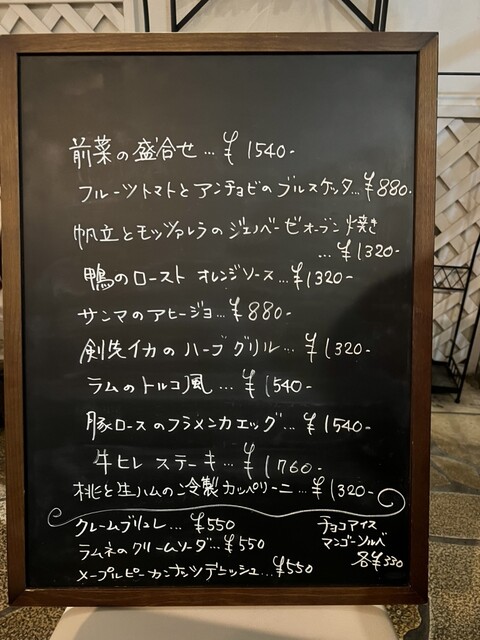 前菜の盛合せ…¥1540-
フルーツトマトとアンチョビのブルスケッタ…¥880-
帆立とモッツァレラのジェノベーゼオーブン焼き
…¥1320-
鴨のロースト オレンジソース…¥1320-
サンマのアヒージョ…¥880-
剣先イカのハーブグリル…¥1320-
ラムのトルコ風…¥1540-
豚ロースのフラメンカエッグ…¥1540-
牛ヒレステーキ…¥1760-
桃と生ハムの冷製カッペリーニ…¥1320-
クレームブリュレ…¥550
ラムネのクリームソーダ…¥550
メープルピーカンナッツデニッシュ…¥550
チョコアイス
マンゴーソルベ
各¥330